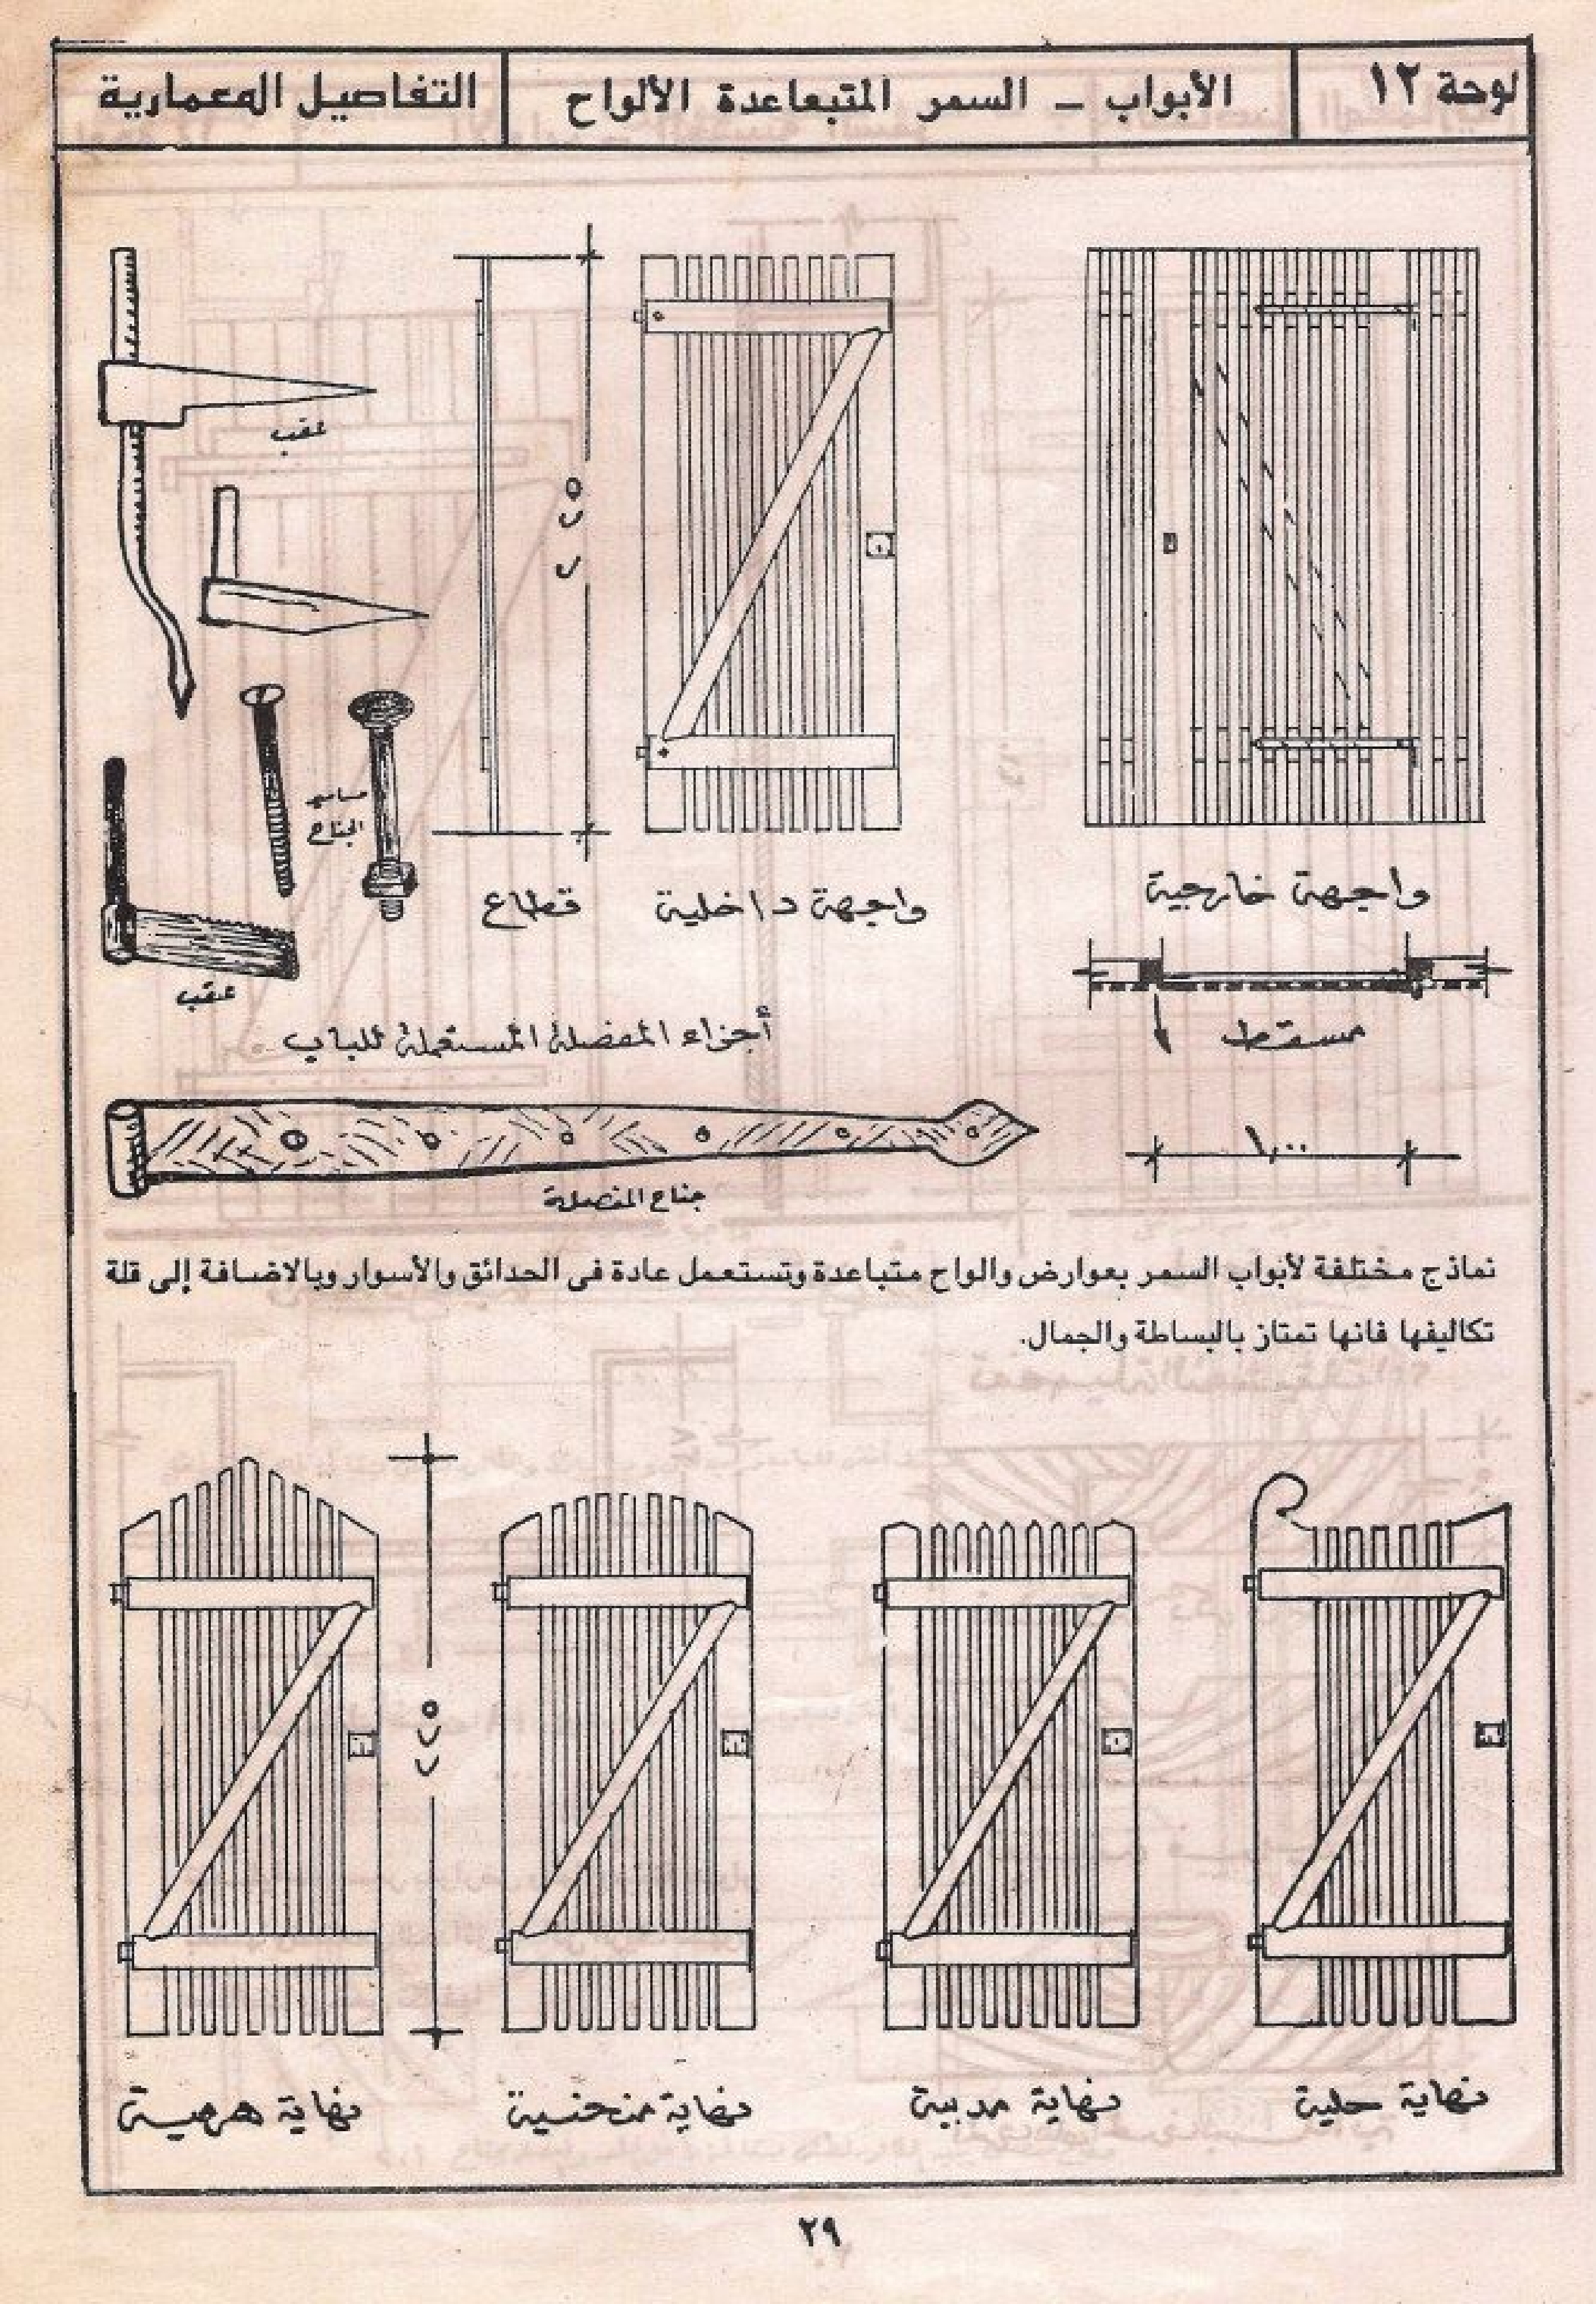 لوحة ١٢
الأبواب – السمر المتبعاعدة الألواح
التفاصيل المعمارية
عقب
مسامير
الجناح
عقب
قطاع
واجهة داخلية
واجهة خارجية
مسقط
أجزاء المفصلة المستعملة للباب
١,٠٠
جناح المفصلة
نماذج مختلفة لأبواب السمر بعوارض والواح متباعدة وتستعمل عادة فى الحدائق والأسوار وبالاضافة إلى قلة
تكاليفها فانها تمتاز بالبساطة والجمال.
نهاية حلية
نهاية مدببة
نهاية منحنية
نهاية هرمية
٢٩